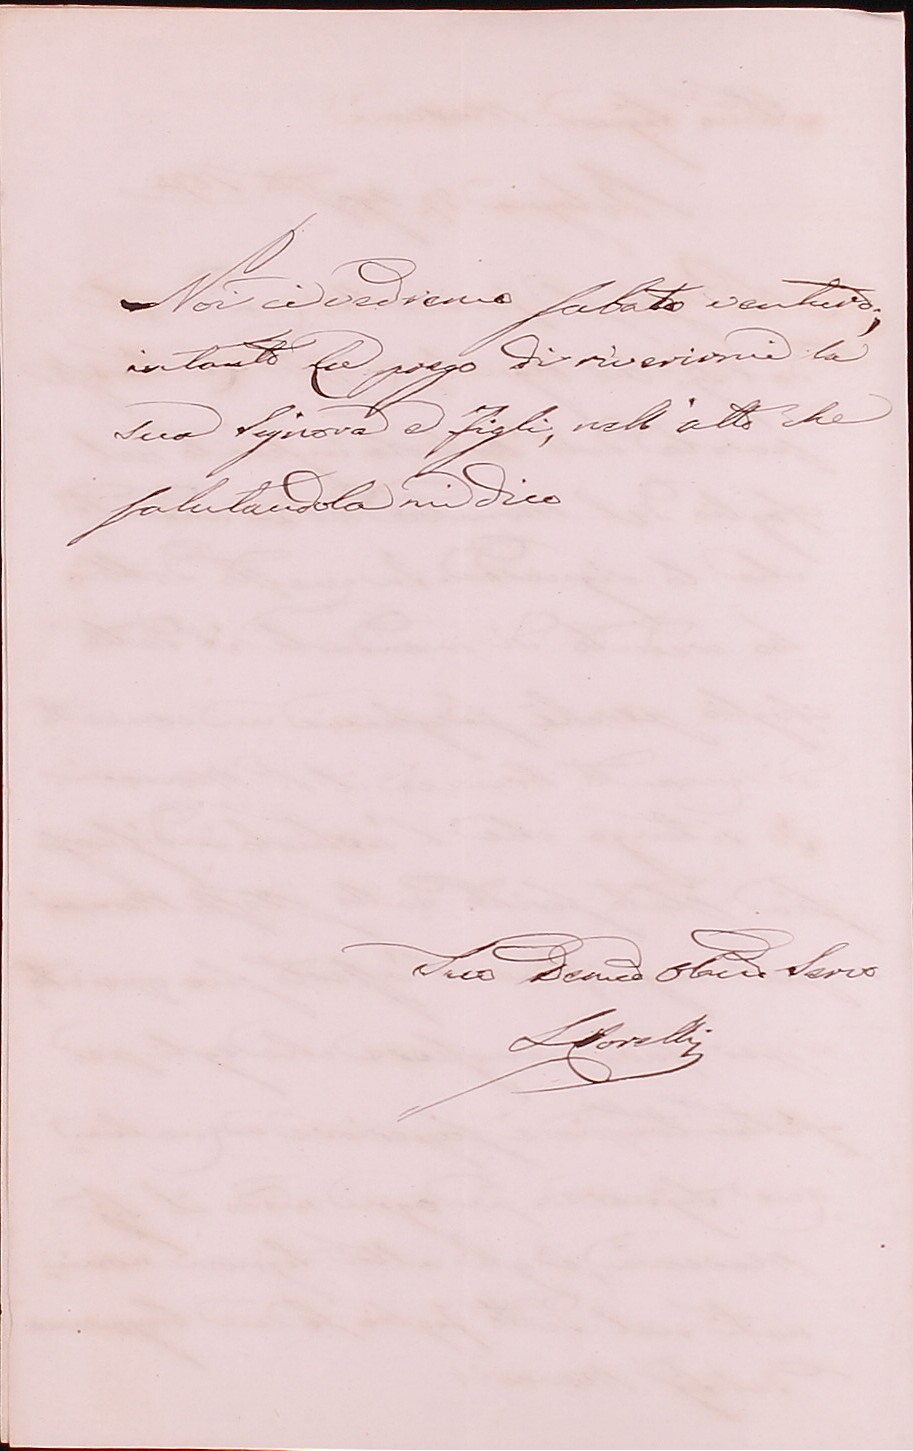 Noi ci vedremo sabato venturo;
intanto La prego di riverirmi la
sua Signora e Figli, nell'atto che
salutandola mi dico
Suo Servo